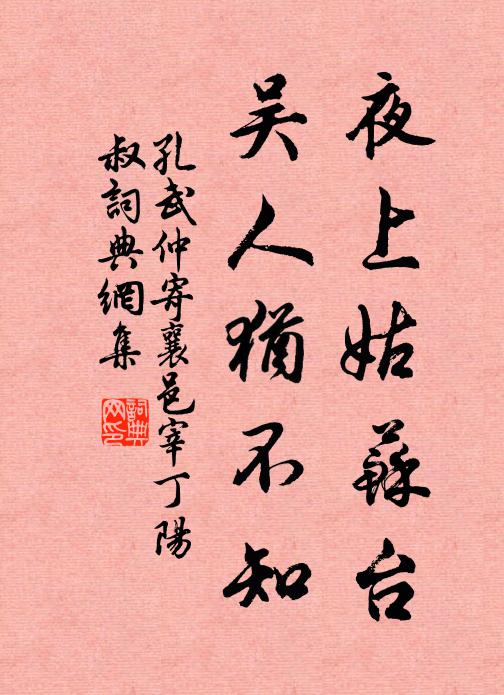 夜上姑蘇台
吴人猶不知
孔武仲寄襄邑宰丁陽
叔詞典網集
詞典
网印